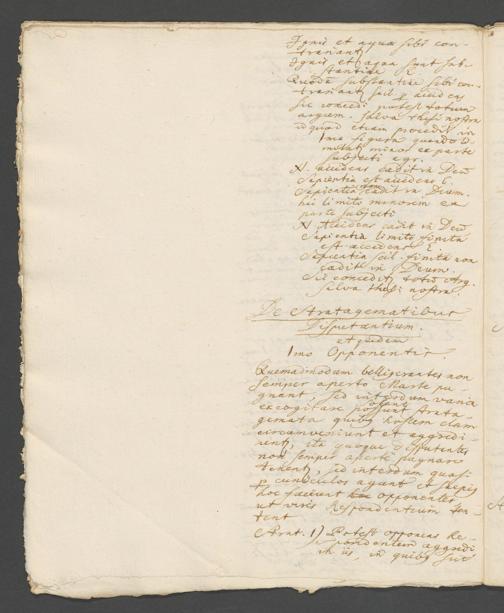 Ignis et aqua sibi con-
trariant
Ignis et aqua sunt sub-
stantiae E.
Quaedam substantiae sibi con-
trariant scil. p accidens
sic concedi potest totum
argum. salva thesi nostra
id quod etiam procedit in
Ima figura quando D
mutat minor ex parte
subjecti e.gr.
N. accidens cadit in Deū
Sapientia est accidens E.
Sapientia non cadit in Deum.
hic limito minorem ex
parte subjecti
N Accidens cadit in Deū
Sapientia limito finita
est accidens E.
Sapientia scil. finita non
cadit in Deum.
Sic concedit totū Arg.
salva thesi nostra.
De Stratagematibus
Disputantium.
et quidem
Imo Opponentis.
Quemadmodum belligerantes non
semper aperto Marte pu-
gnant, sed interdum varia
excogitare possunt strata-
gemata quibus hostem clam
circumveniunt et aggredi
untur, ita quoque disputantes
non semper aperte pugnare
tenent, sed interdum quasi
p cuniculos agant et saepius
hoc faciunt opponentes
ut vires Respondentium ten-
tent
Strat. 1) Potest opponens Re-
spondentem aggredi
in iis, in quibus scit